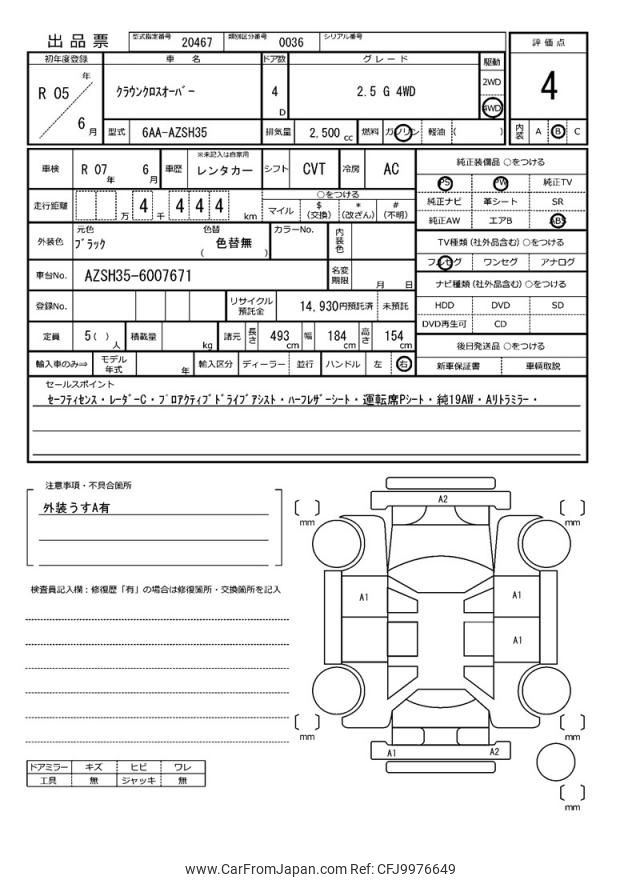 出品票 型式指定番号 20467 類別区分番号 0036 シリアル番号
評価点
4
初年度登録 車名 ドア数 グレード 駆動
R 05 年 6 月 クラウンクロスオーバー 4 D 2.5 G 4WD 2WD 4WD
型式 6AA-AZSH35 排気量 2,500 cc 燃料 ガソリン 軽油 ( )
内装 A B C
車検 R 07 年 6 月 車歴 ※未記入は自家用 レンタカー シフト CVT 冷房 AC
走行距離 万 4 千 4 4 4 km
○をつける
マイル $ (交換) * (改ざん) # (不明)
外装色 元色 ブラック 色替 ( 色替無 ) カラーNo. 内装色
車台No. AZSH35-6007671 名変期限 月 日
登録No. リサイクル預託金 14,930円預託済 未預託
定員 5 ( ) 人 積載量 kg 諸元 長さ 493 cm 幅 184 cm 高さ 154 cm
輸入車のみ⇒ モデル年式 年 輸入区分 ディーラー 並行 ハンドル 左 右
純正装備品 ○をつける
PS PW 純正TV
純正ナビ 革シート SR
純正AW エアB ABS
TV種類 (社外品含む) ○をつける
フルセグ ワンセグ アナログ
ナビ種類 (社外品含む) ○をつける
HDD DVD SD
DVD再生可 CD
後日発送品 ○をつける
新車保証書 車輌取説
セールスポイント
セーフティセンス・レーダーC・プロアクティブドライブアシスト・ハーフレザーシート・運転席Pシート・純19AW・Aリトラミラー・
注意事項・不具合箇所
外装うすA有
検査員記入欄：修復歴「有」の場合は修復箇所・交換箇所を記入
ドアミラー キズ ヒビ ワレ
工具 無 ジャッキ 無
A2
mm
mm
A1
A1
A1
mm
mm
A1 A2
mm
www.CarFromJapan.com Ref: CFJ9976649